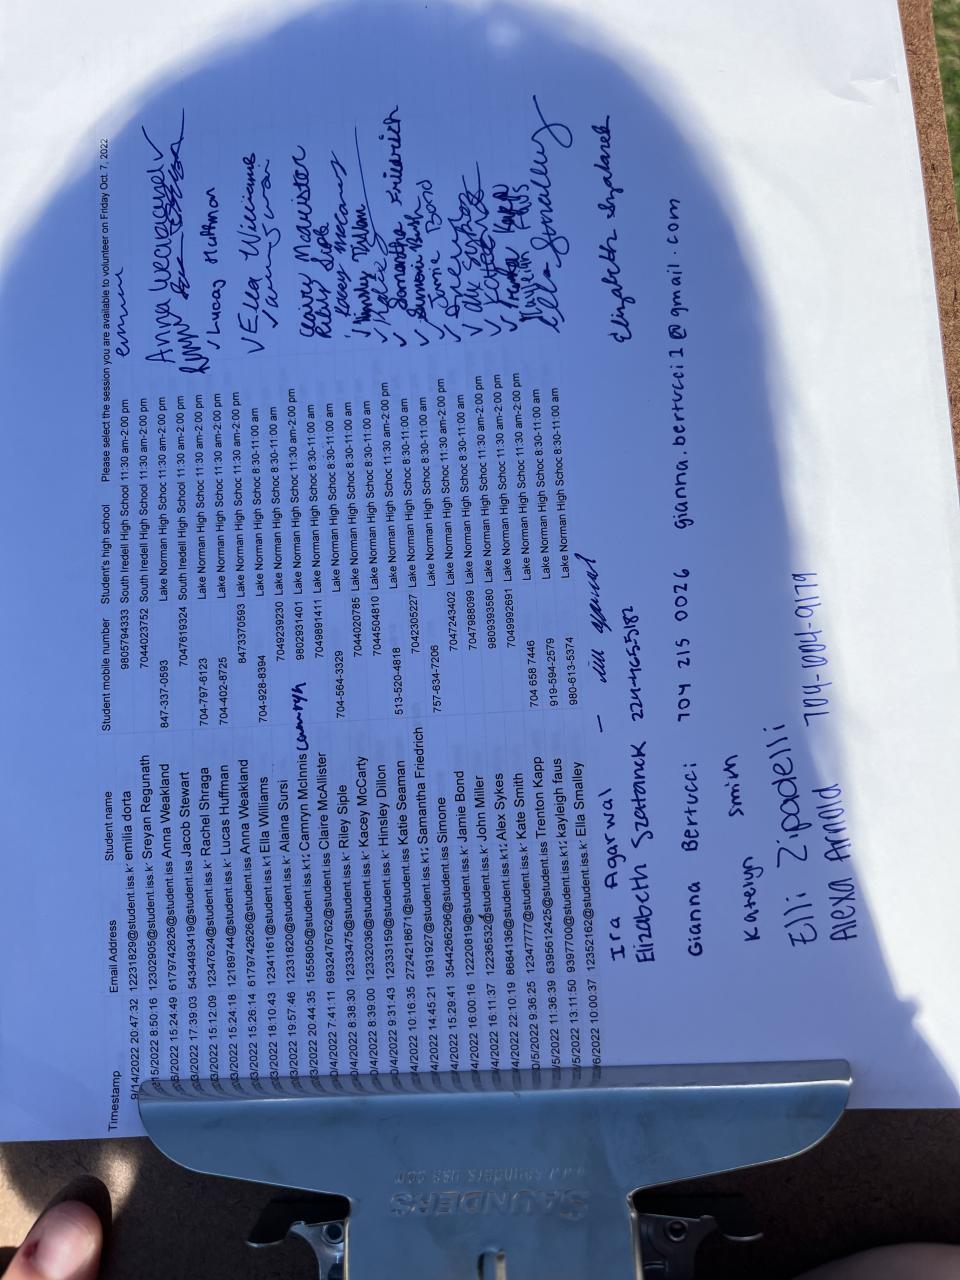 Timestamp Email Address Student name Student mobile number Student's high school Please select the session you are available to volunteer on Friday Oct. 7, 2022
9/14/2022 20:47:32 12231829@student.iss.k emilia dorta 9805794333 South Iredell High School 11:30 am-2:00 pm
15/2022 8:50:16 12302905@student.iss.k Sreyan Regunath 7044023752 South Iredell High School 11:30 am-2:00 pm
/2022 15:24:49 6179742626@student.iss Anna Weakland 847-337-0593 Lake Norman High Schoc 11:30 am-2:00 pm Anna Weakland
3/2022 17:39:03 5434493419@student.iss Jacob Stewart 7047619324 South Iredell High School 11:30 am-2:00 pm
3/2022 15:12:09 12347624@student.iss.k Rachel Shraga 704-797-6123 Lake Norman High Schoc 11:30 am-2:00 pm
3/2022 15:24:18 12189744@student.iss.k Lucas Huffman 704-402-8725 Lake Norman High Schoc 11:30 am-2:00 pm ✓ Lucas Huffman
3/2022 15:26:14 6179742626@student.iss Anna Weakland 8473370593 Lake Norman High Schoc 11:30 am-2:00 pm
3/2022 18:10:43 12341161@student.iss.k1 Ella Williams 704-928-8394 Lake Norman High Schoc 8:30-11:00 am ✓ Ella Williams
3/2022 19:57:46 12331820@student.iss.k Alaina Sursi 7049239230 Lake Norman High Schoc 11:30 am-2:00 pm
3/2022 20:44:35 15555805@student.iss.k12 Camryn McInnis Camryn 9802931401 Lake Norman High Schoc 11:30 am-2:00 pm
0/4/2022 7:41:11 6932476762@student.iss Claire McAllister 7049891411 Lake Norman High Schoc 8:30-11:00 am
0/4/2022 8:38:30 12333475@student.iss.k Riley Siple 704-564-3329 Lake Norman High Schoc 8:30-11:00 am Riley Siple
0/4/2022 8:39:00 12332036@student.iss.k Kacey McCarty 7044020785 Lake Norman High Schoc 8:30-11:00 am
0/4/2022 9:31:43 12333159@student.iss.k Hinsley Dillon 7044504810 Lake Norman High Schoc 8:30-11:00 am ✓ Hinsley Dillon
4/2022 10:16:35 2724218671@student.iss Katie Seaman 513-520-4818 Lake Norman High Schoc 11:30 am-2:00 pm
4/2022 14:45:21 1931927@student.iss.k12 Samantha Friedrich 7042305227 Lake Norman High Schoc 8:30-11:00 am ✓ Samantha Friedrich
4/2022 15:29:41 3544266296@student.iss Simone 757-634-7206 Lake Norman High Schoc 8:30-11:00 am ✓
4/2022 16:00:16 12220819@student.iss.k Jamie Bond 7047243402 Lake Norman High Schoc 11:30 am-2:00 pm ✓ Jamie Bond
4/2022 16:11:37 12236532@student.iss.k John Miller 7047988099 Lake Norman High Schoc 8:30-11:00 am
4/2022 22:10:19 8684136@student.iss.k12 Alex Sykes 9809393580 Lake Norman High Schoc 11:30 am-2:00 pm ✓ Alex Sykes
0/5/2022 9:36:25 12347777@student.iss.k Kate Smith 7049992691 Lake Norman High Schoc 11:30 am-2:00 pm
/5/2022 11:36:39 6395612425@student.iss Trenton Kapp 704 658 7446 Lake Norman High Schoc 11:30 am-2:00 pm
/5/2022 13:11:50 9397700@student.iss.k12 kayleigh faus 919-594-2579 Lake Norman High Schoc 8:30-11:00 am
/6/2022 10:00:37 12352162@student.iss.k Ella Smalley 980-613-5374 Lake Norman High Schoc 8:30-11:00 am Ella Smalley
Ira Agarwal —
Elizabeth Szatanek 224-465-5182 Elizabeth Szatanek
Gianna Bertucci 704 215 0026 gianna.bertucci1@gmail.com
Katelyn Smith
Elli Zipadelli
Alexa Arnold 704-004-9179
SAUNDERS